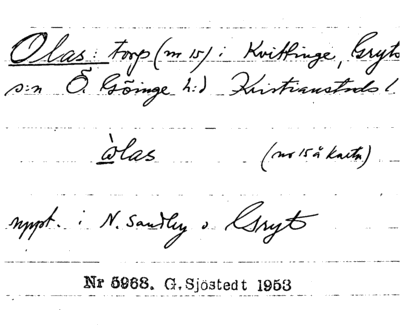 Olas: torp (nr 15) i Kvittinge, Gryts
s:n Ö. Göinge h:d Kristianstads l
òlas (nr 15 å karta)
uppt. i N. Sandby o Gryt
Nr 5968. G. Sjöstedt 1953